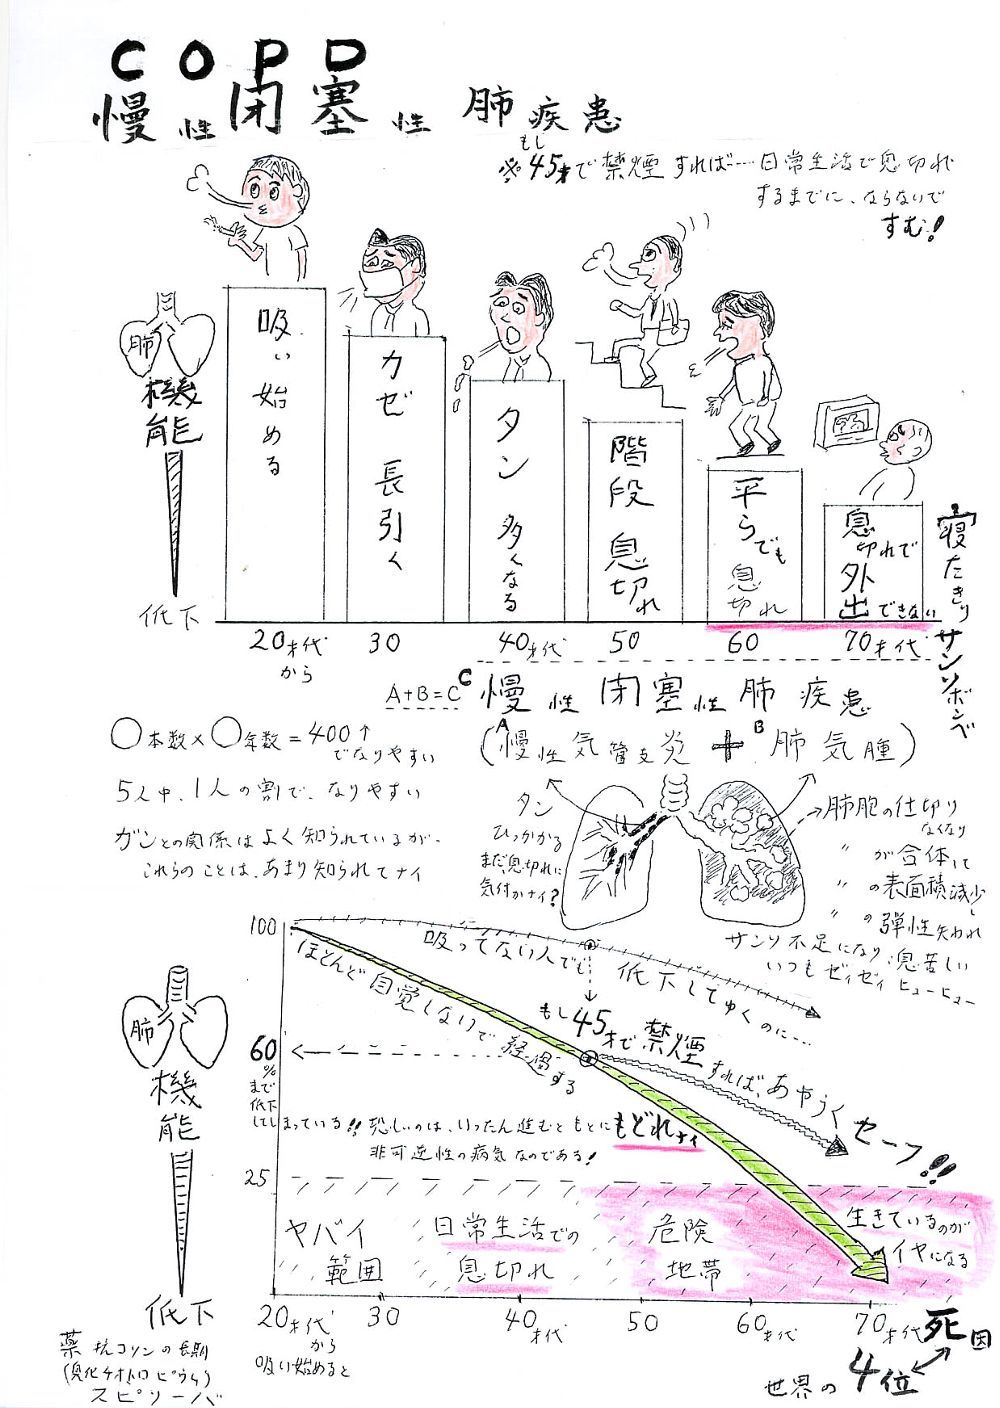 COPD
慢性閉塞性肺疾患
※もし45才で禁煙すれば…日常生活で息切れ
するまでに、ならないで
すむ!
肺
機能
低下
吸い始める
カゼ長引く
タン多くなる
階段息切れ
平らでも息切れ
息切れで外出できない
寝たきりサンソボンベ
20才代から
30
40才代
50
60
70才代
A+B=C
C慢性閉塞性肺疾患
(A慢性気管支炎+B肺気腫)
〇本数×〇年数=400↑
でなりやすい
5人中、1人の割で、なりやすい
ガンとの関係はよく知られているが、
これらのことは、あまり知られてナイ
タン
ひっかかる
まだ、息切れに
気付かナイ?
→肺胞の仕切り
なくなり
〃が合体して
〃の表面積減少し
〃の弾性失われ
サンソ不足になり息苦しい
いつもゼイゼイヒューヒュー
100
吸ってない人でも
低下してゆくのに…
ほとんど自覚しないで経過する
もし45才で禁煙すれば、あやうくセーフ!!
肺
機能
低下
60
%
まで
低下
してしまっている!!恐しいのは、いったん進むともとにもどれナイ
非可逆性の病気なのである!
25
ヤバイ
範囲
日常生活での
息切れ
危険
地帯
生きているのが
イヤになる
20才代
から
吸い始めると
30
40才代
50
60才代
70才代
死因
世界の4位
薬
スピリーバ